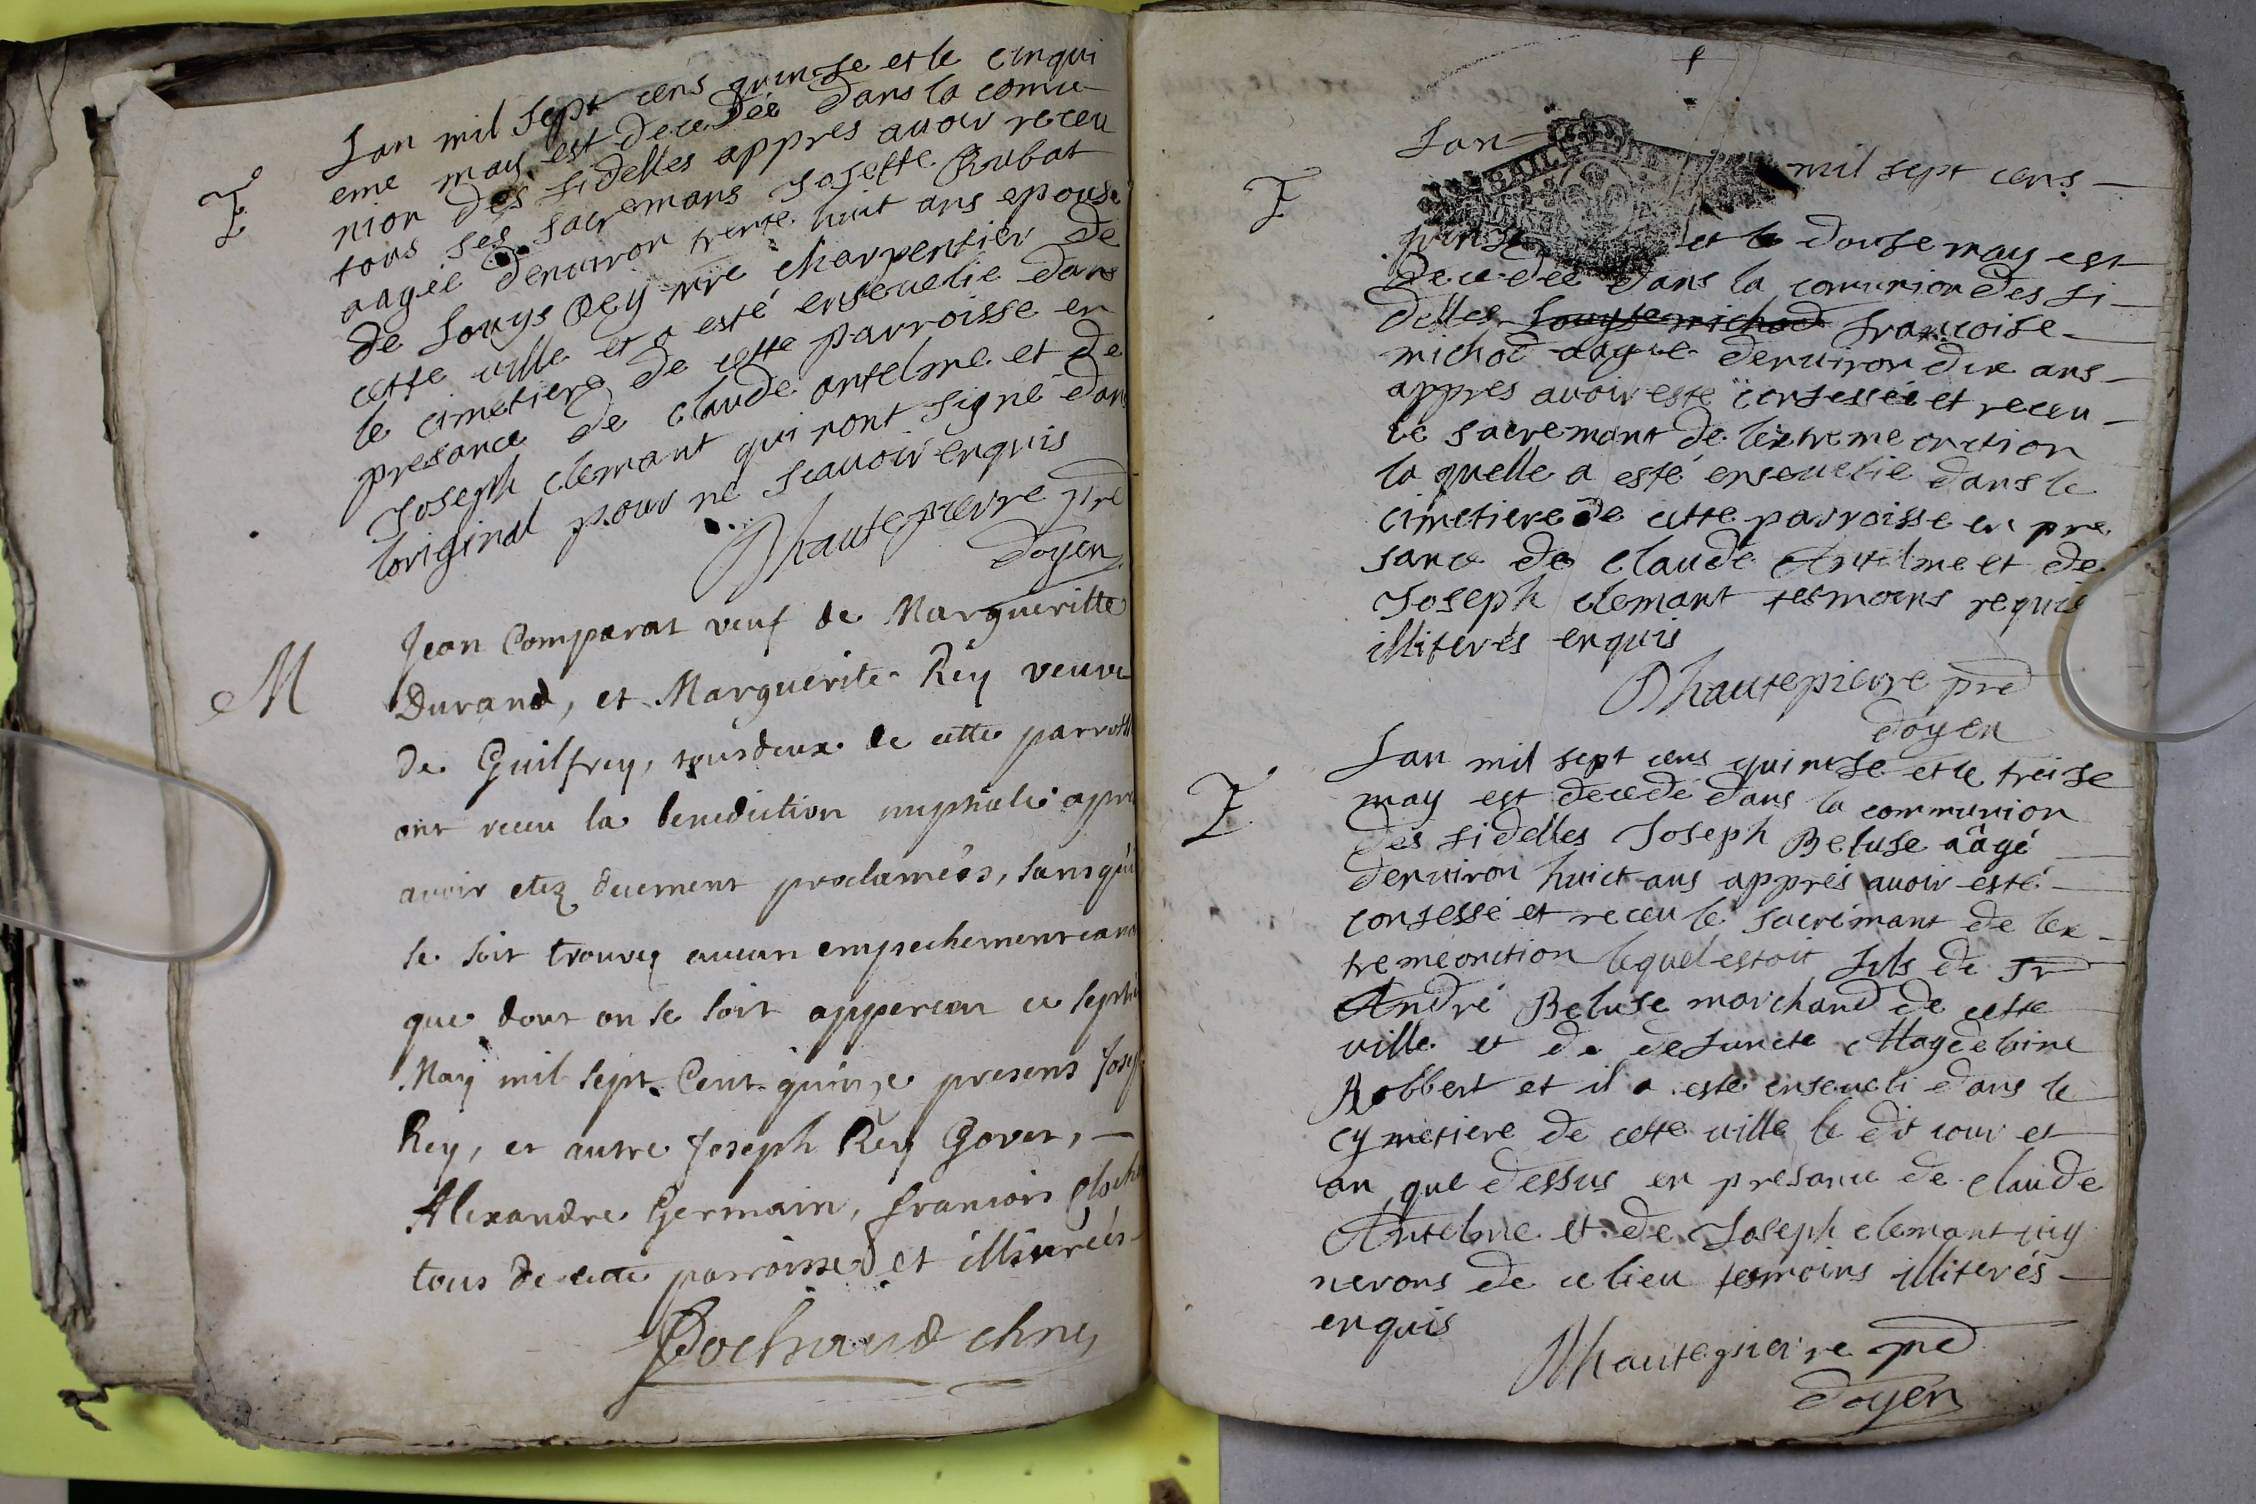 Lan mil sept cens quinse et le cinqui
eme may est decedée dans la comu
nion des fidelles appres auoir receu
tous ses sacremans Josette Rubat
aagée denuiron trente huit ans epouse
de Louys Rey me charpentier de
cette ville et a esté enseuelie dans
le cimetiere de cette parroisse en
presance de claude antelme et de
Joseph clemant qui nont signé dans
loriginal pour ne scauoir enquis
Dhautepierre ptre
doyen
M
Jean Comparat veuf de Margueritte
Durand, et Marguerite Rey veuve
de Guilfrey, tous deux de cette parroisse
ont receu la benediction nuptiale apres
avoir etez deuement proclamés, sans qui
se soit trouvez aucun empechement cano
que dont on se soit apperceu ce septie
May mil sept Cent quinze presens Josep
Rey, et autre Joseph Rey Govet,
Alexandre Germain, francois
tous de cette parroisse et illiterés
Lan mil sept cens
quinse et le douse may est
decedée dans la comunion des fi
delles Louyse michod francoise
michod aagée denuiron dix ans
appres auoir esté confessée et receu
le sacremant de lextreme onction
la quelle a esté enseuelie dans le
cimetiere de cette parroisse en pre
sance de claude Antelme et de
Joseph clemant tesmoins requis
illiterés enquis
Dhautepierre ptre
doyen
Lan mil sept cens quinse et le treise
may est decedé dans la communion
des fidelles Joseph Beluse aâgé
denuiron huict ans appres auoir esté
confessé et receu le sacremant de lex
treme onction lequel estoit fils de sr
André Beluse marchand de cette
ville et de defuncte Magdeloine
Robbert et il a esté enseueli dans le
cymetiere de cette ville le dit iour et
an que dessus en presance de claude
Antelme et de Joseph clemant uig
nerons de ce lieu tesmoins illiterés
enquis
Dhautepierre ptre
doyen